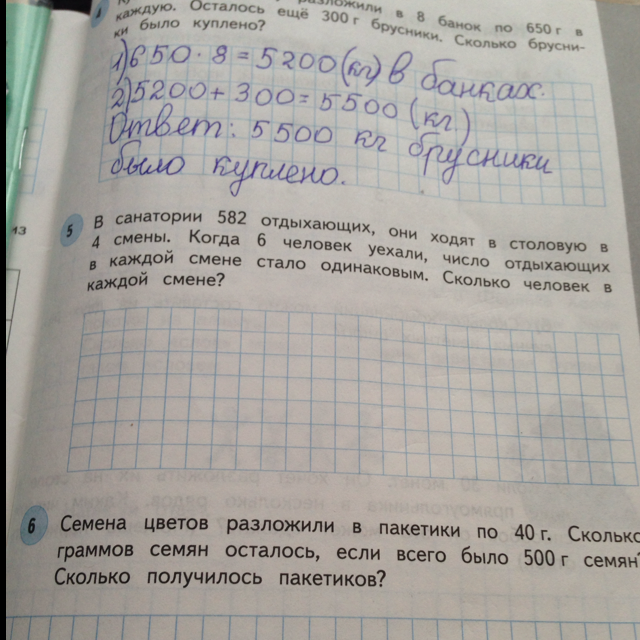 разложили в 8 банок по 650 г в
каждую. Осталось ещё 300 г брусники. Сколько брусни-
ки было куплено?
1) 650 · 8 = 5200 (кг) в банках.
2) 5200 + 300 = 5500 (кг)
Ответ: 5500 кг брусники
было куплено.
из
5 В санатории 582 отдыхающих, они ходят в столовую в
4 смены. Когда 6 человек уехали, число отдыхающих
в каждой смене стало одинаковым. Сколько человек в
каждой смене?
6 Семена цветов разложили в пакетики по 40 г. Сколько
граммов семян осталось, если всего было 500 г семян?
Сколько получилось пакетиков?